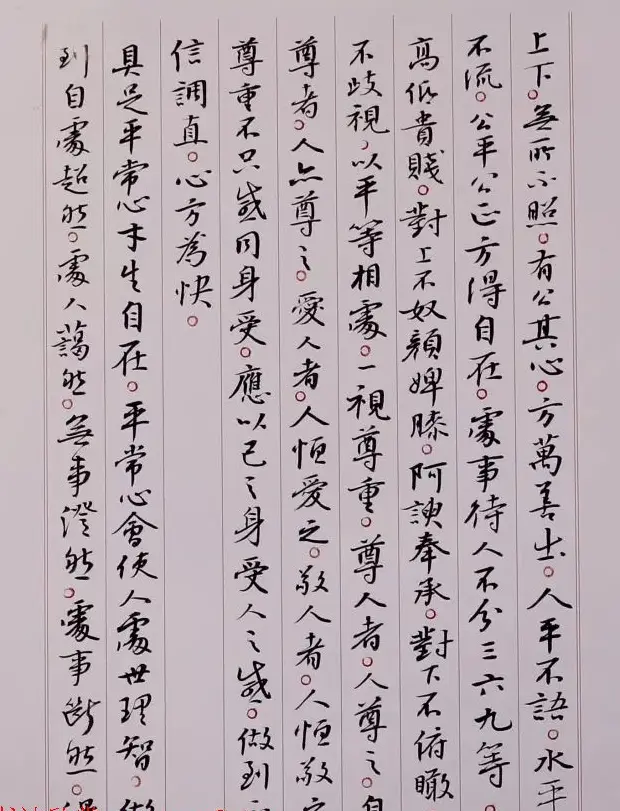 上下。無所不照。有公其心。方萬善出。人平不語。水平
不流。公平公正方得自在。處事待人不分三六九等。
高低貴賤。對上不奴顏婢膝。阿諛奉承。對下不俯瞰
不歧視、以平等相處。一視尊重。尊人者。人尊之。自
尊者。人亦尊之。愛人者。人恒愛之。敬人者。人恒敬之
尊重不只感同身受。應以己之身受人之感。做到
信調直。心方為快。
具足平常心才生自在。平常心會使人處世理智。做
到自處超然。處人藹然。無事澄然。處事斷然。得